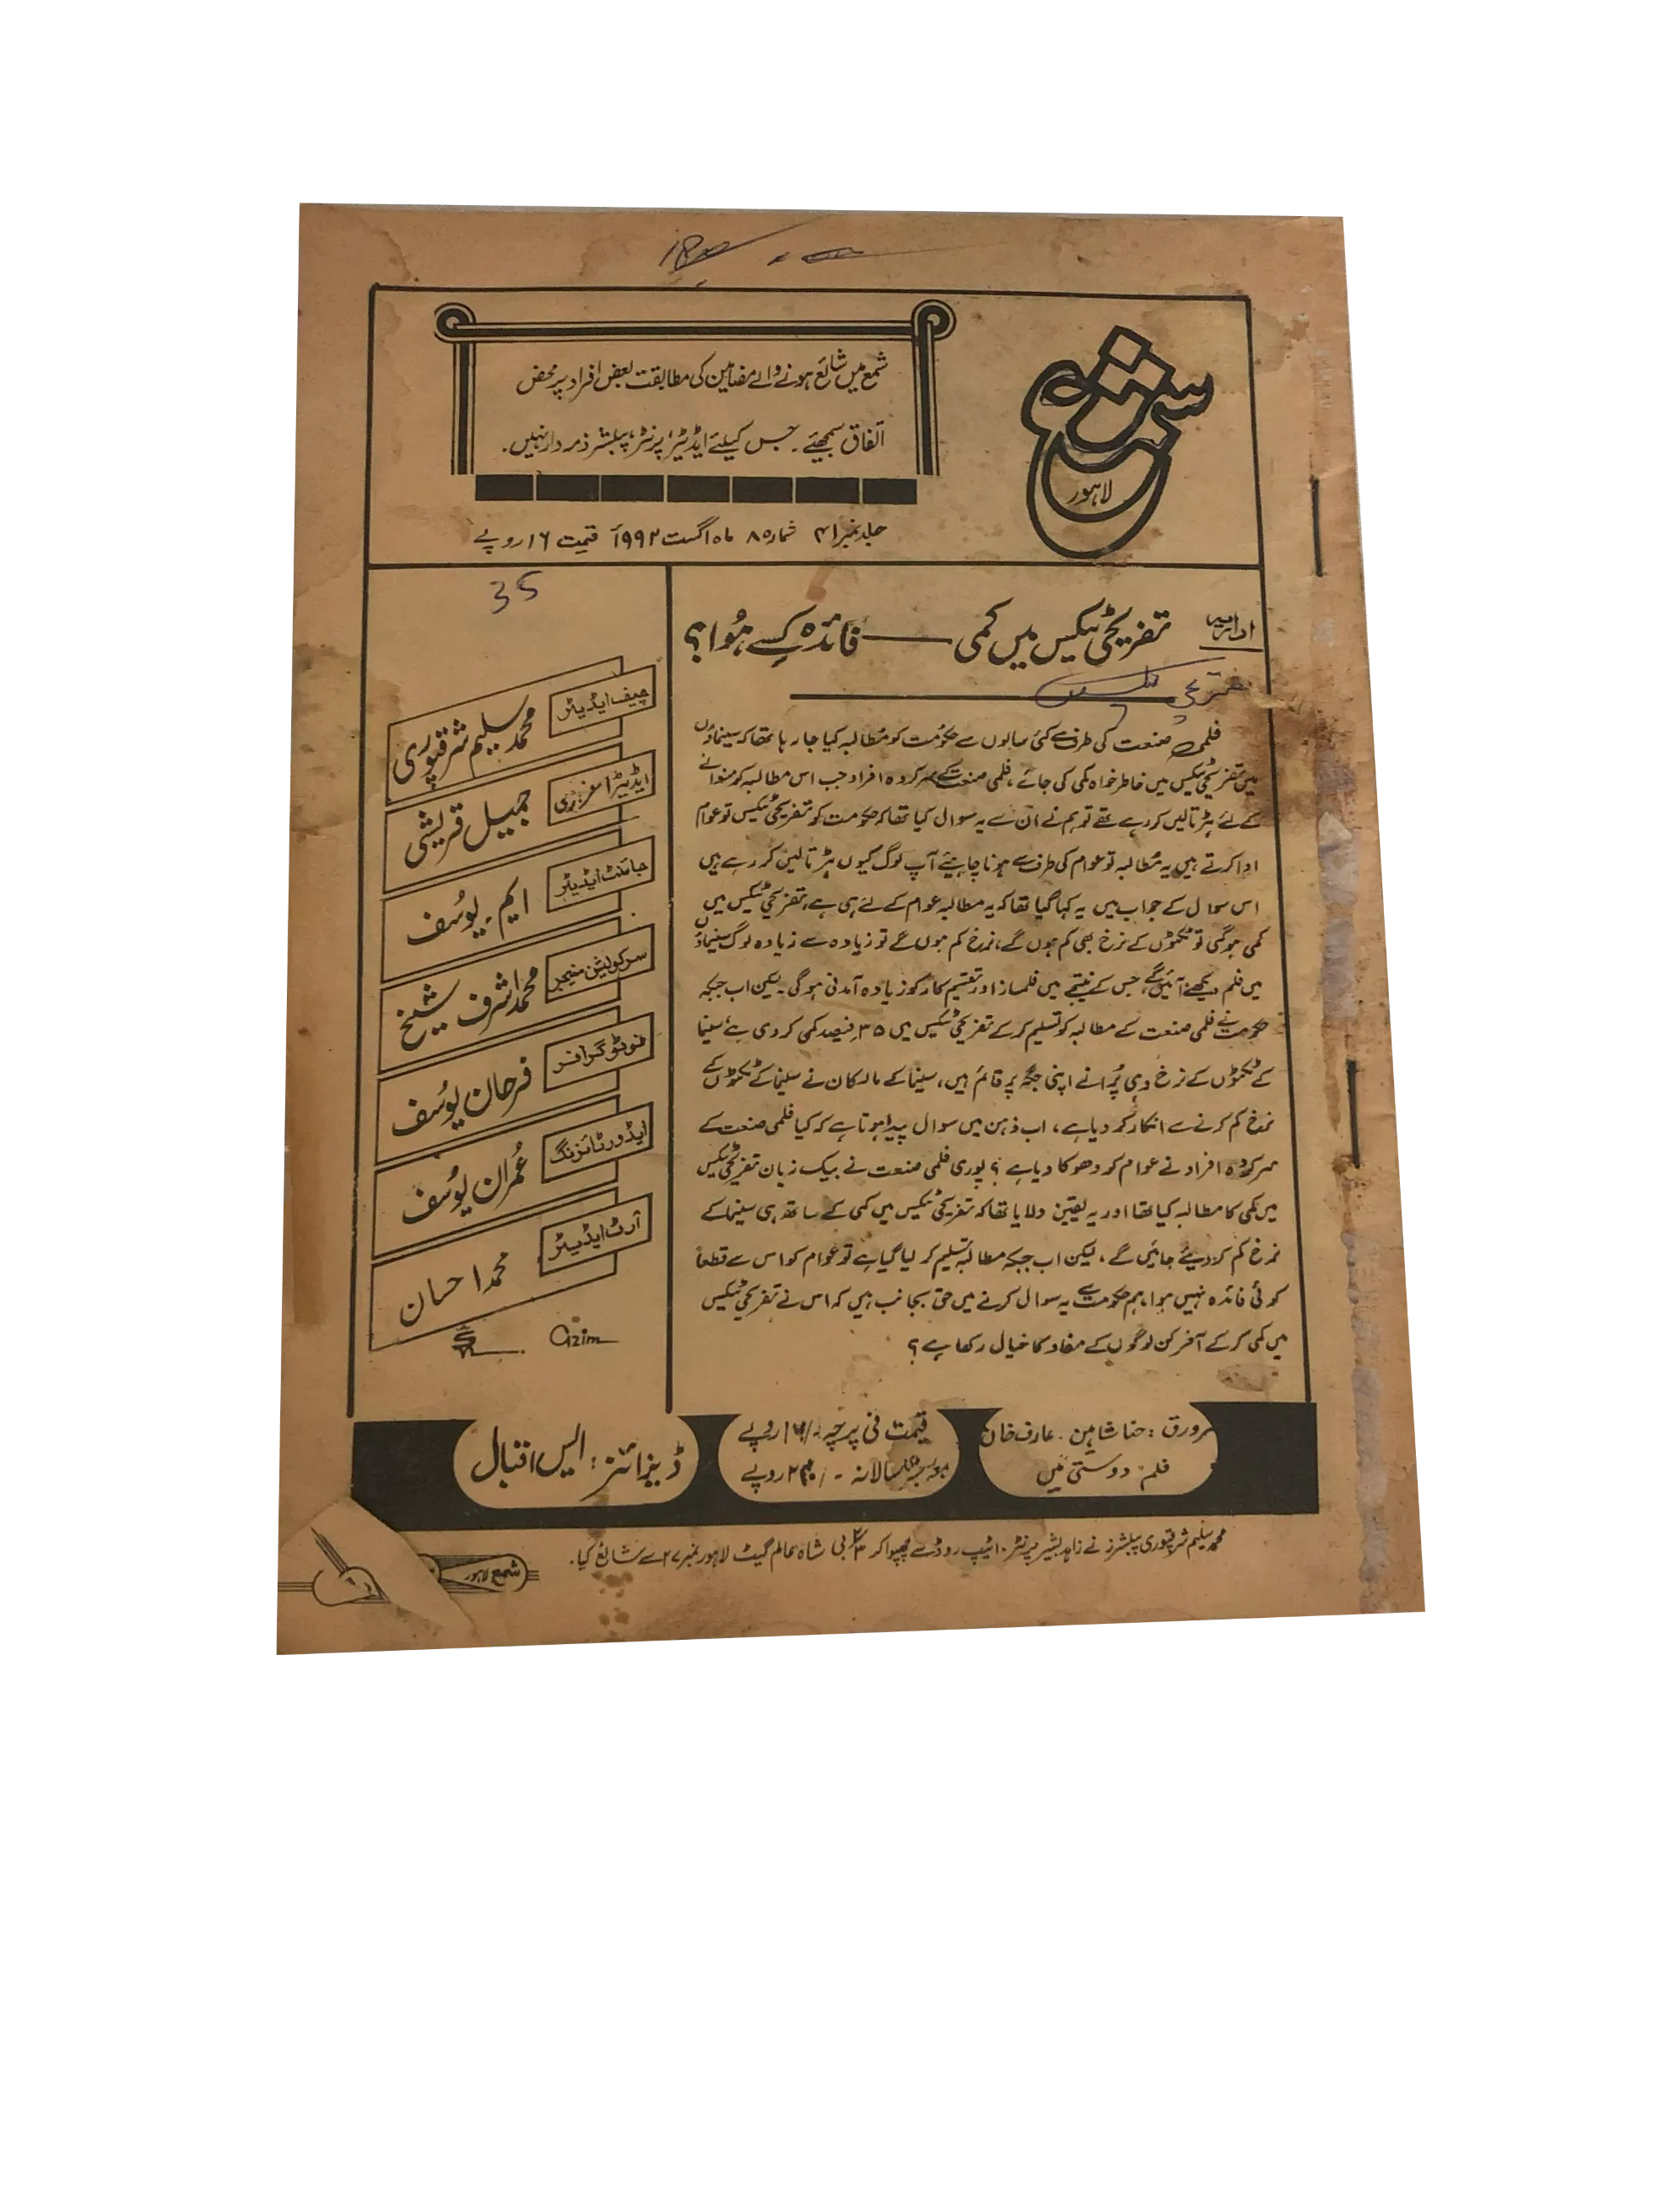 شمع
لاہور
شمع میں شائع ہونے والے مضامین کی مطابقت بعض افراد پر محض
اتفاق سمجھئے ۔ جس کیلئے ایڈیٹر، پرنٹر، پبلشر ذمہ دار نہیں۔
جلد نمبر ۴۱ شمارہ ۸ ماہ اگست ۱۹۹۲ء قیمت ۱۶ روپے
اداریہ
تفریحی ٹیکس میں کمی —— فائدہ کِسے ہُوا؟
تفریحی ٹیکس
فلمی صنعت کی طرف سے کئی سالوں سے حکومت کو مُطالبہ کیا جا رہا تھا کہ سینماؤں
میں تفریحی ٹیکس میں خاطر خواہ کمی کی جائے، فلمی صنعت کے سرکردہ افراد جب اس مطالبہ کو منوانے
کے لئے ہڑتالیں کر رہے تھے تو ہم نے ان سے یہ سوال کیا تھا کہ حکومت کو تفریحی ٹیکس تو عوام
ادا کرتے ہیں یہ مُطالبہ تو عوام کی طرف سے ہونا چاہیئے آپ لوگ کیوں ہڑتالیں کر رہے ہیں
اس سوال کے جواب میں یہ کہا گیا تھا کہ یہ مطالبہ عوام کے لئے ہی ہے، تفریحی ٹیکس میں
کمی ہوگی تو ٹکٹوں کے نرخ بھی کم ہوں گے، نرخ کم ہوں گے تو زیادہ سے زیادہ لوگ سنیماؤں
میں فلم دیکھنے آئیں گے، جس کے نتیجے میں فلمساز اور تقسیم کار کو زیادہ آمدنی ہوگی۔ لیکن اب جبکہ
حکومت نے فلمی صنعت کے مطالبہ کو تسلیم کر کے تفریحی ٹیکس میں ۳۵ فیصد کمی کر دی ہے سنیما
کے ٹکٹوں کے نرخ وہی پُرانے اپنی جگہ پر قائم ہیں، سینما کے مالکان نے سنیما کے ٹکٹوں کے
نرخ کم کرنے سے انکار کر دیا ہے، اب ذہن میں سوال پیدا ہوتا ہے کہ کیا فلمی صنعت کے
سرکردہ افراد نے عوام کو دھوکا دیا ہے؟ پوری فلمی صنعت نے بیک زبان تفریحی ٹیکس
میں کمی کا مطالبہ کیا تھا اور یہ یقین دلایا تھا کہ تفریحی ٹیکس میں کمی کے ساتھ ہی سنیما کے
نرخ کم کر دیئے جائیں گے، لیکن اب جبکہ مطالبہ تسلیم کر لیا گیا ہے تو عوام کو اس سے قطعاً
کوئی فائدہ نہیں ہوا، ہم حکومت سے یہ سوال کرنے میں حق بجانب ہیں کہ اس نے تفریحی ٹیکس
میں کمی کر کے آخر کن لوگوں کے مفاد کا خیال رکھا ہے؟
35
چیف ایڈیٹر
محمد سلیم شرقپوری
ایڈیٹر اعزازی
جمیل قریشی
جائنٹ ایڈیٹر
ایم۔ یوسُف
سرکولیشن منیجر
محمد اشرف شیخ
فوٹو گرافر
فرحان یوسُف
ایڈورٹائزنگ
عُمران یوسُف
آرٹ ایڈیٹر
محمد احسان
Azim
سرورق: حنا شاہین۔ عارف خان
فلم "دوستی" میں
قیمت فی پرچہ روپے
سالانہ روپے
ڈیزائنر: ایس اقبال
محمد سلیم شرقپوری پبلشرز نے زاہد بشیر پرنٹرز، اٹیپ روڈ سے چھپوا کر بی شاہ عالم گیٹ لاہور نمبر ۲۷ سے شائع کیا۔
شمع لاہور